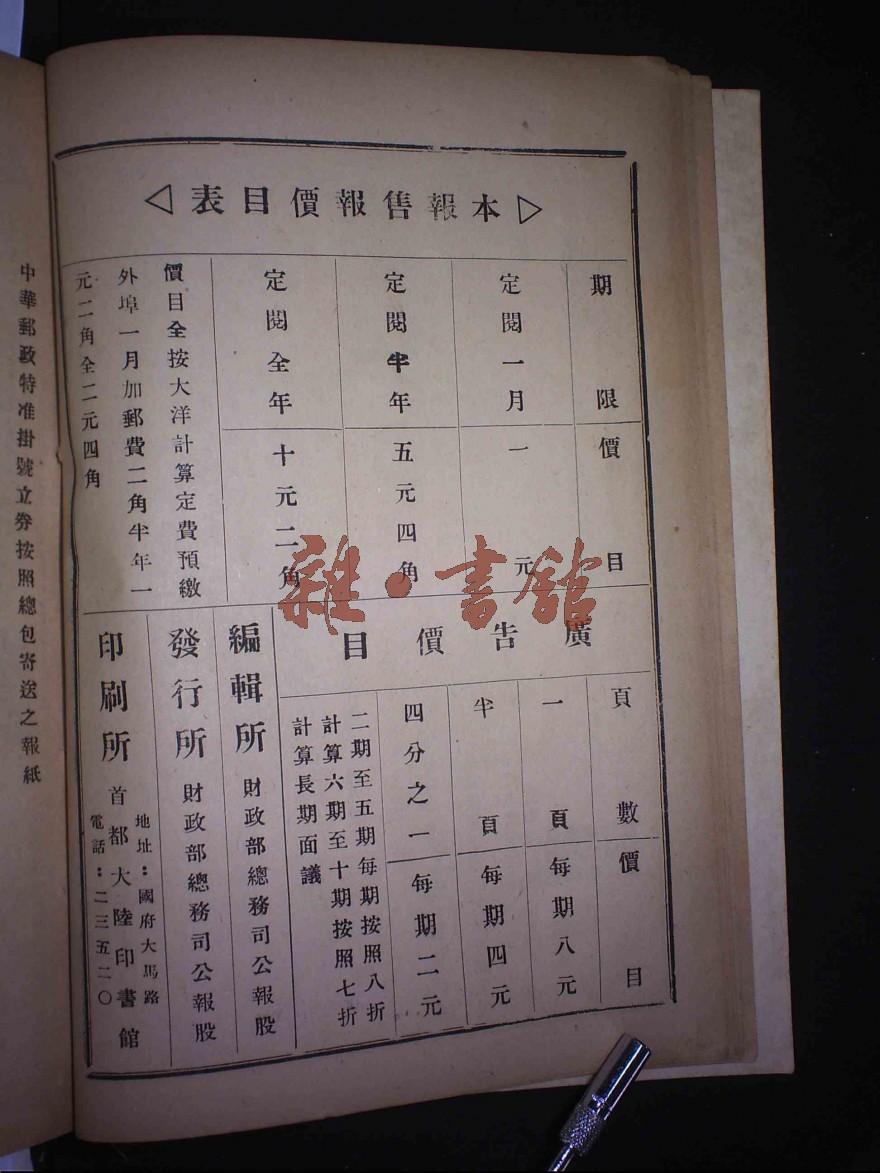 ▷本報售報價目表◁
期限 價目
定閱一月 一元
定閱半年 五元四角
定閱全年 十元二角
價目全按大洋計算定費預繳
外埠一月加郵費二角半年一
元二角全二元四角
廣告價目
頁數 價目
一頁 每期八元
半頁 每期四元
四分之一 每期二元
二期至五期每期按照八折
計算六期至十期按照七折
計算長期面議
編輯所 財政部總務司公報股
發行所 財政部總務司公報股
印刷所 首都大陸印書館
地址：國府大馬路
電話：二三五二〇
中華郵政特准掛號立券按照總包寄送之報紙
雜·書館